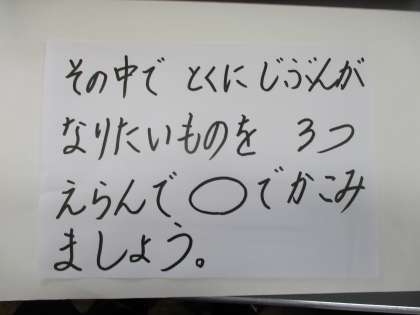 その中で とくに じぶんが
なりたいものを 3つ
えらんで◯でかこみ
ましょう。